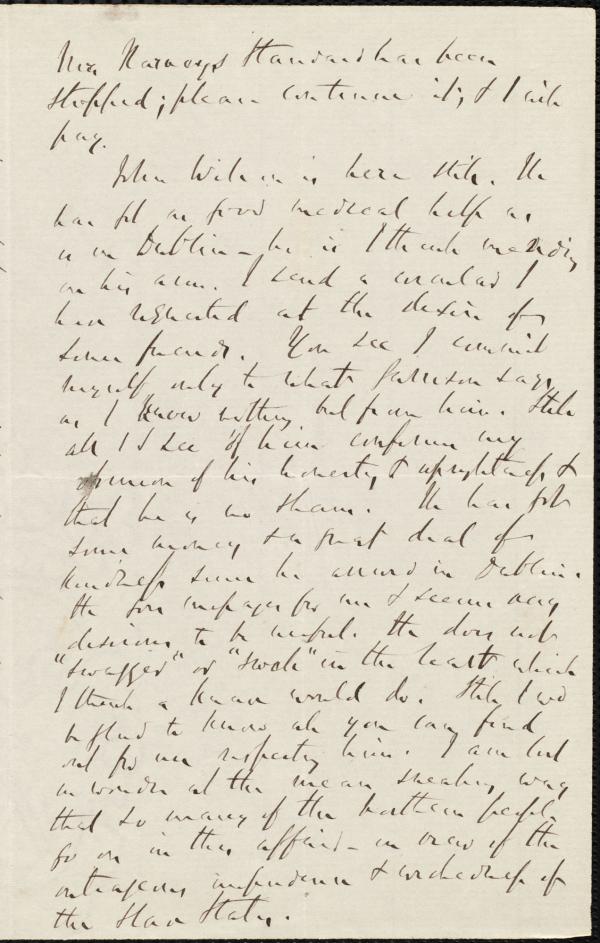 Mrs Harveys Standard has been
stopped; please continue it, & I will
pay.
John Wilson is here still. He
has got as good medical help as
is in Dublin - he is I think mending
in his arm. I send a circular I
have reprinted at the desire of
some friends. You see I commit
myself only to what Garrison says,
as I know nothing but from him. Still
all I see of him confirms my
opinion of his honesty, & uprightness, &
that he is no sham. He has got
some money & a great deal of
kindness since he arrived in Dublin.
He goes messages for me & seems very
desirous to be useful. He does not
"swagger" or "swell" in the least which
I think a knave would do. Still I wd
be glad to know all you can find
out for me respecting him. I am lost
in wonder at the mean sneaking way
that so many of the Northern people
go on in this affair - in view of the
outrageous impudence & wickedness of
the Slave States.